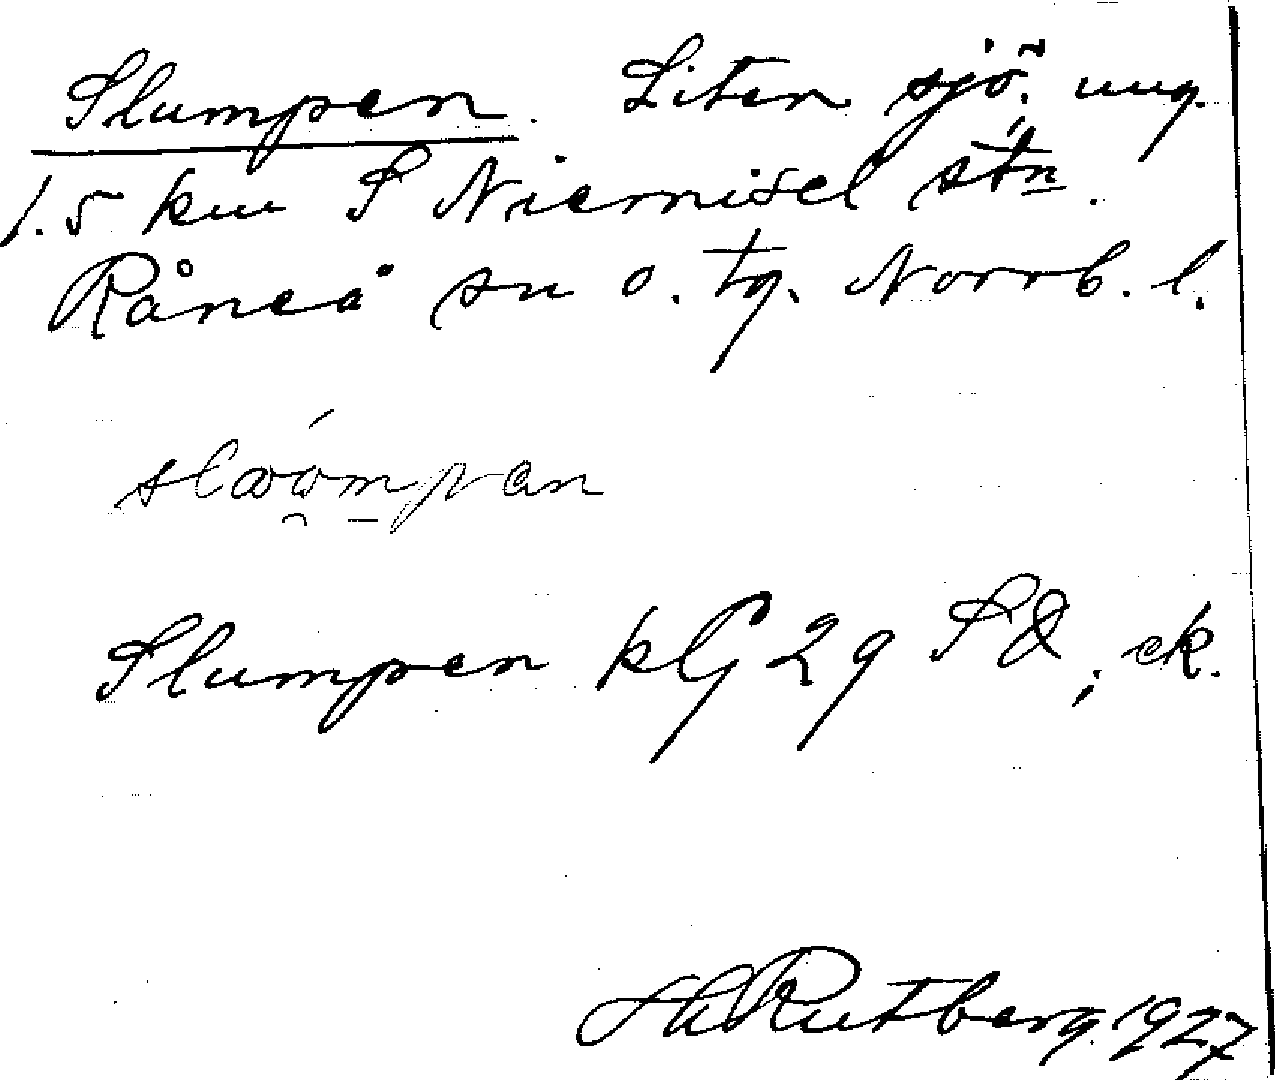 Slumpen. Liten sjö, ung.
1.5 km S Niemisel stn.
Råneå sn o. tg. Norrb. l.
Slumpen klG 29 SO, ek.
Rutberg. 1927